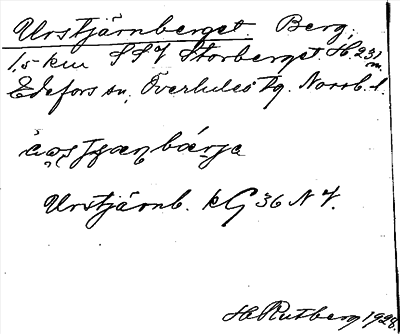 Urstjärnberget. Berg,
1,5 km SSV Storberget. H. 231 m.
Edefors sn, Överluleå tg. Norrb. l.
Urstjärnb. kG 36 NV.
H Rutberg 1928.